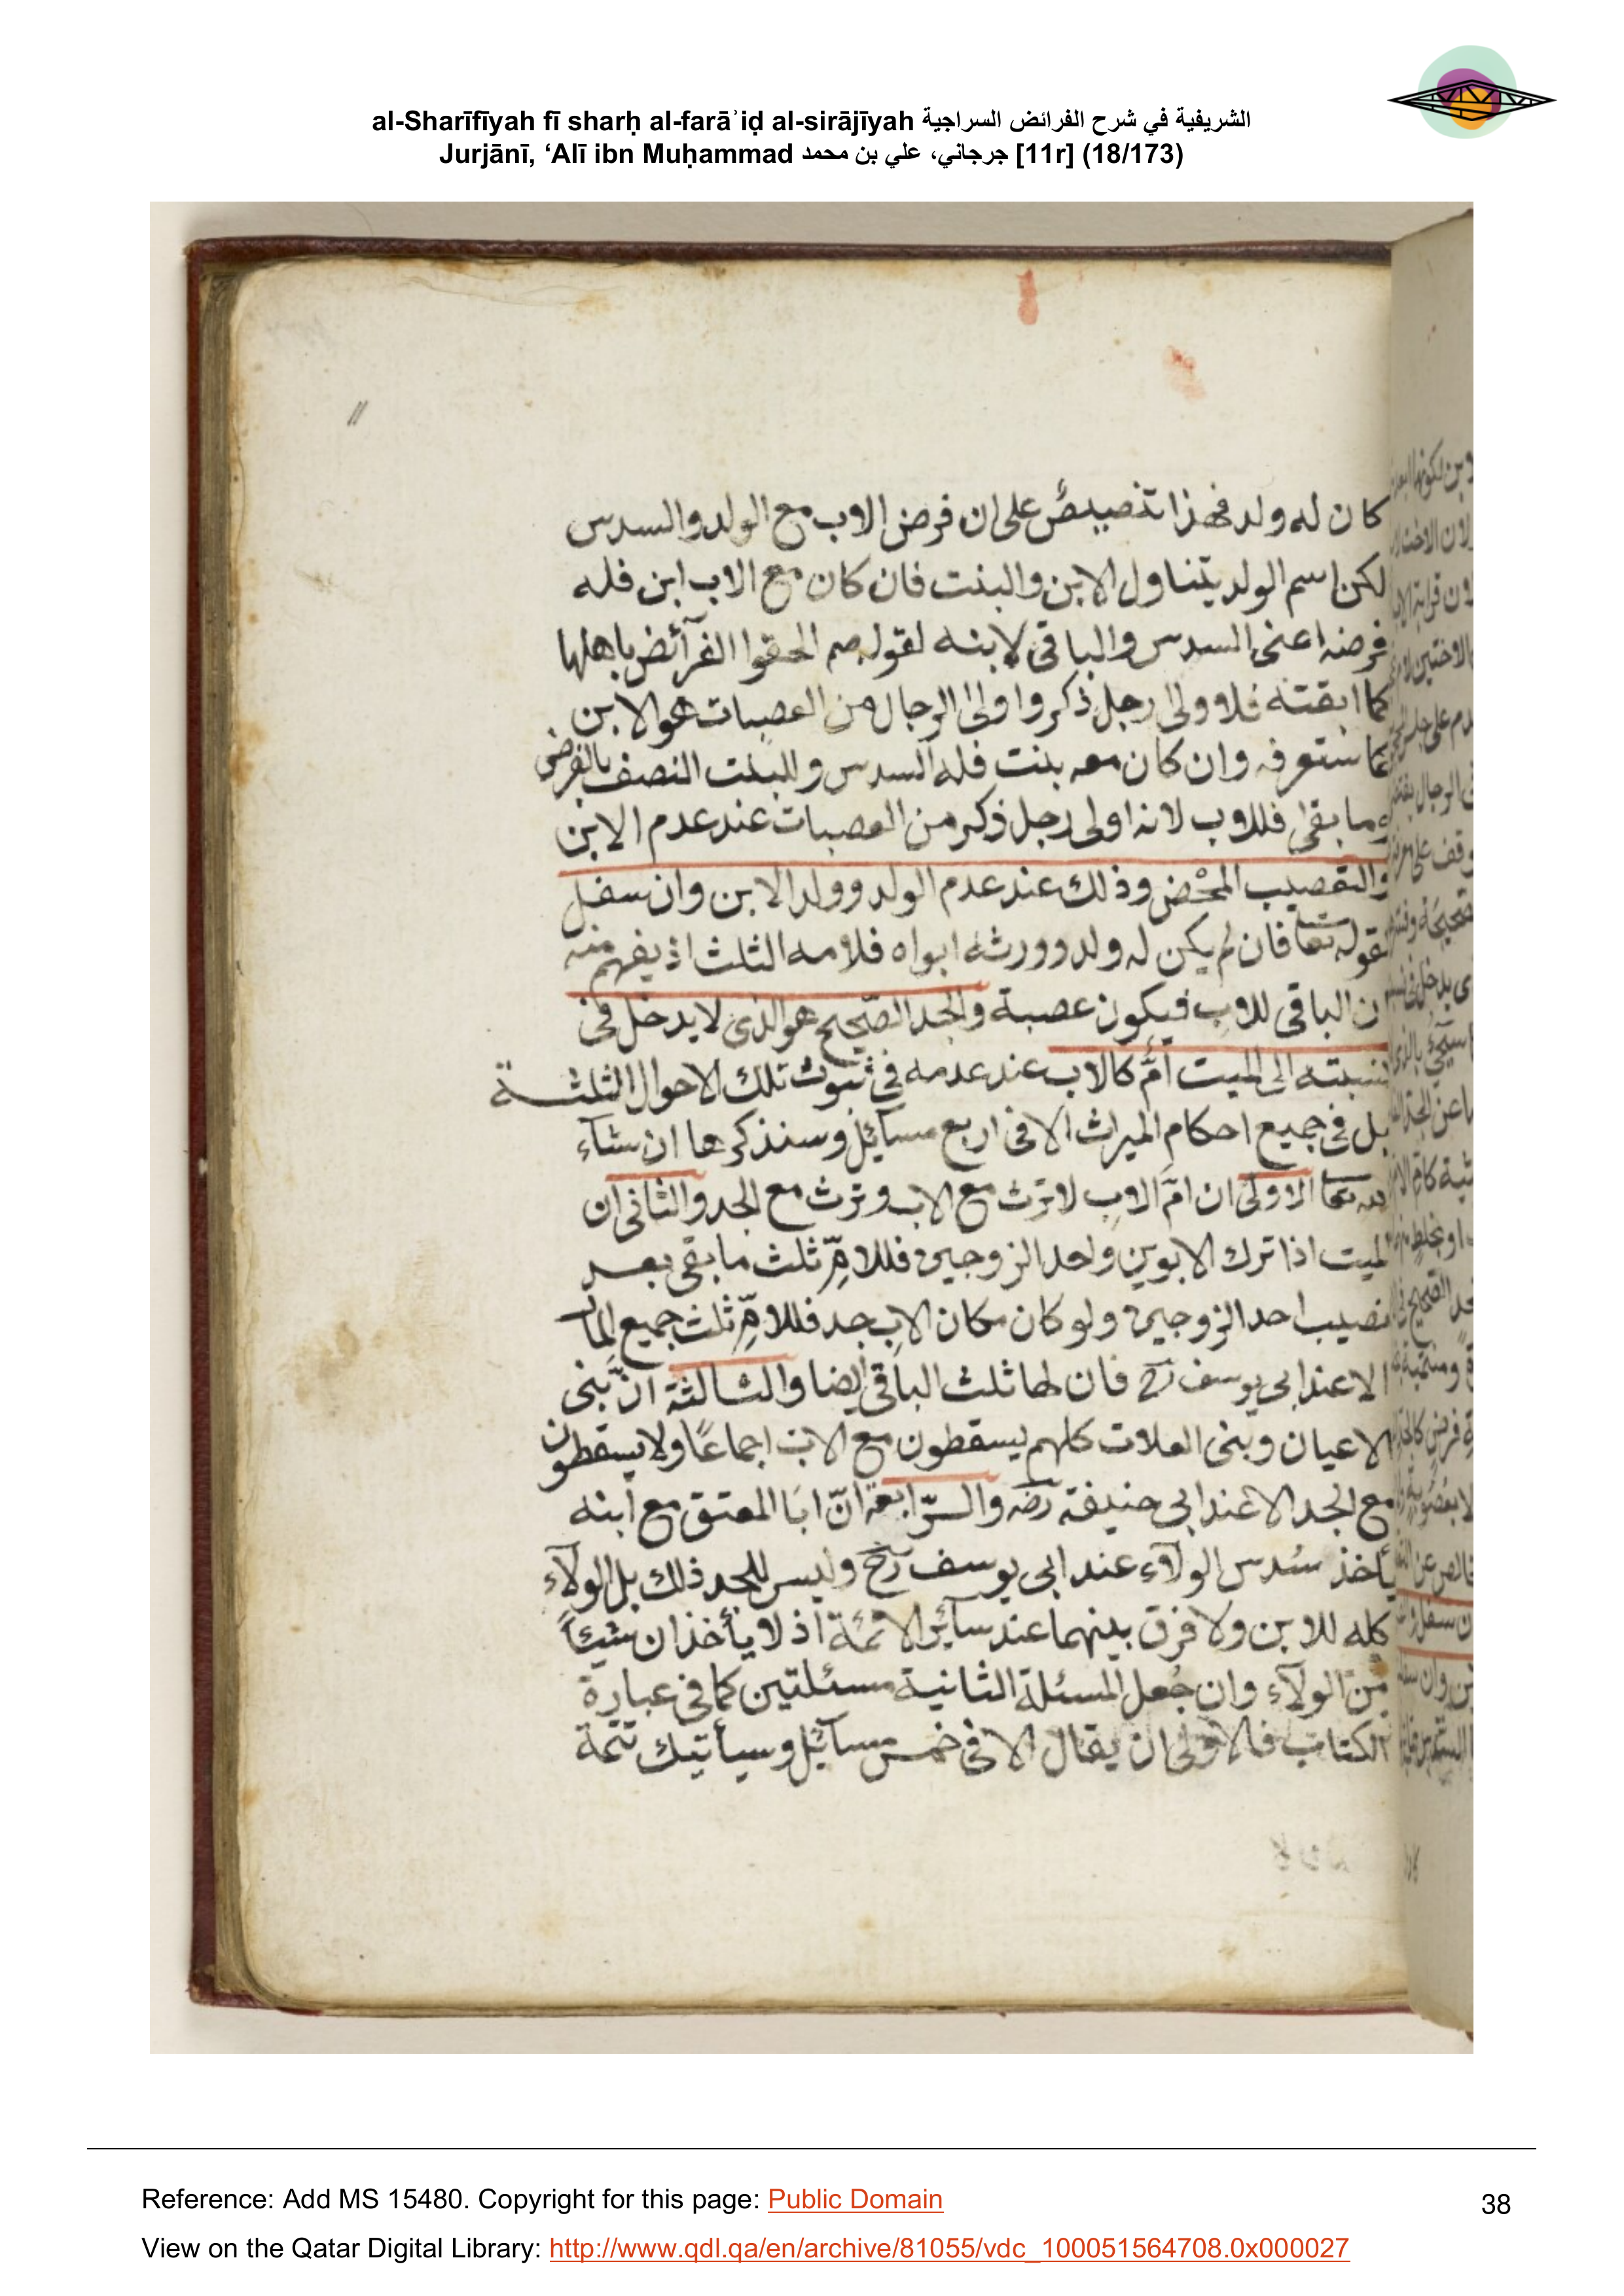 al-Sharīfīyah fī sharḥ al-farāʾiḍ al-sirājīyah الشريفية في شرح الفرائض السراجية
Jurjānī, ‘Alī ibn Muḥammad جرجاني، علي بن محمد [11r] (18/173)
11
كان له ولد فهذا تنصيصٌ على ان فرض الاب مع الولد والسدس
لكن اسم الولد يتناول الابن والبنت فان كان مع الاب ابن فله
فرضه اعنى السدس والباقى لابنه لقوله صم الحقوا الفرآئض باهلها
فما ابقته فلاولى رجل ذكر واولى الرجال من العصبات هو الابن
كما ستعرفه وان كان معه بنت فله السدس وللبنت النصف بالفرض
وما بقى فللاب لانه اولى رجل ذكر من العصبات عند عدم الابن
والتعصيب المحْض وذلك عند عدم الولد وولد الابن وان سفل
لقوله تعا فان لم يكن له ولد وورثه ابواه فلامه الثلث اذ يفهم منه
ان الباقى للاب فيكون عصبة والجد الصّحيح هو الذى لا يدخل فى
نسبته الى الميت اُمٌّ كالاب عند عدمه فى ثبوت تلك الاحوال الثلثة
بل فى جميع احكام الميراث الا فى اربع مسآئل وسنذكرها ان شآء
الله تعا الاولى ان امّ الاب لا ترث مع الاب وترث مع الجد والثانى ان
الميت اذا ترك الابوين واحد الزوجين فللامّ ثلث ما بقى بعد
نصيب احد الزوجين ولو كان مكان الاب جد فللامّ ثلث جميع المال
الا عند ابى يوسف رح فان لها ثلث الباقى ايضا والثالثة انّ بنى
الاعيان وبنى العلات كلهم يسقطون مع الاب اجماعًا ولا يسقطون
مع الجد الا عند ابى حنيفة رضه والرّابعة انّ ابَا المعتق مع ابنه
يأخذ سُدس الولآء عند ابى يوسف رح وليس للجد ذلك بل الولآء
كله للابن ولا فرق بينهما عند سآئر الائمة اذ لا يأخذان شيئاً
مّن الولآء وان جُعل المسئلة الثانية مسئلتين كما فى عبارة
الكتاب فالاولى ان يقال الا فى خمس مسآئل وسيأتيك تتمة
Reference: Add MS 15480. Copyright for this page: Public Domain
38
View on the Qatar Digital Library: http://www.qdl.qa/en/archive/81055/vdc_100051564708.0x000027